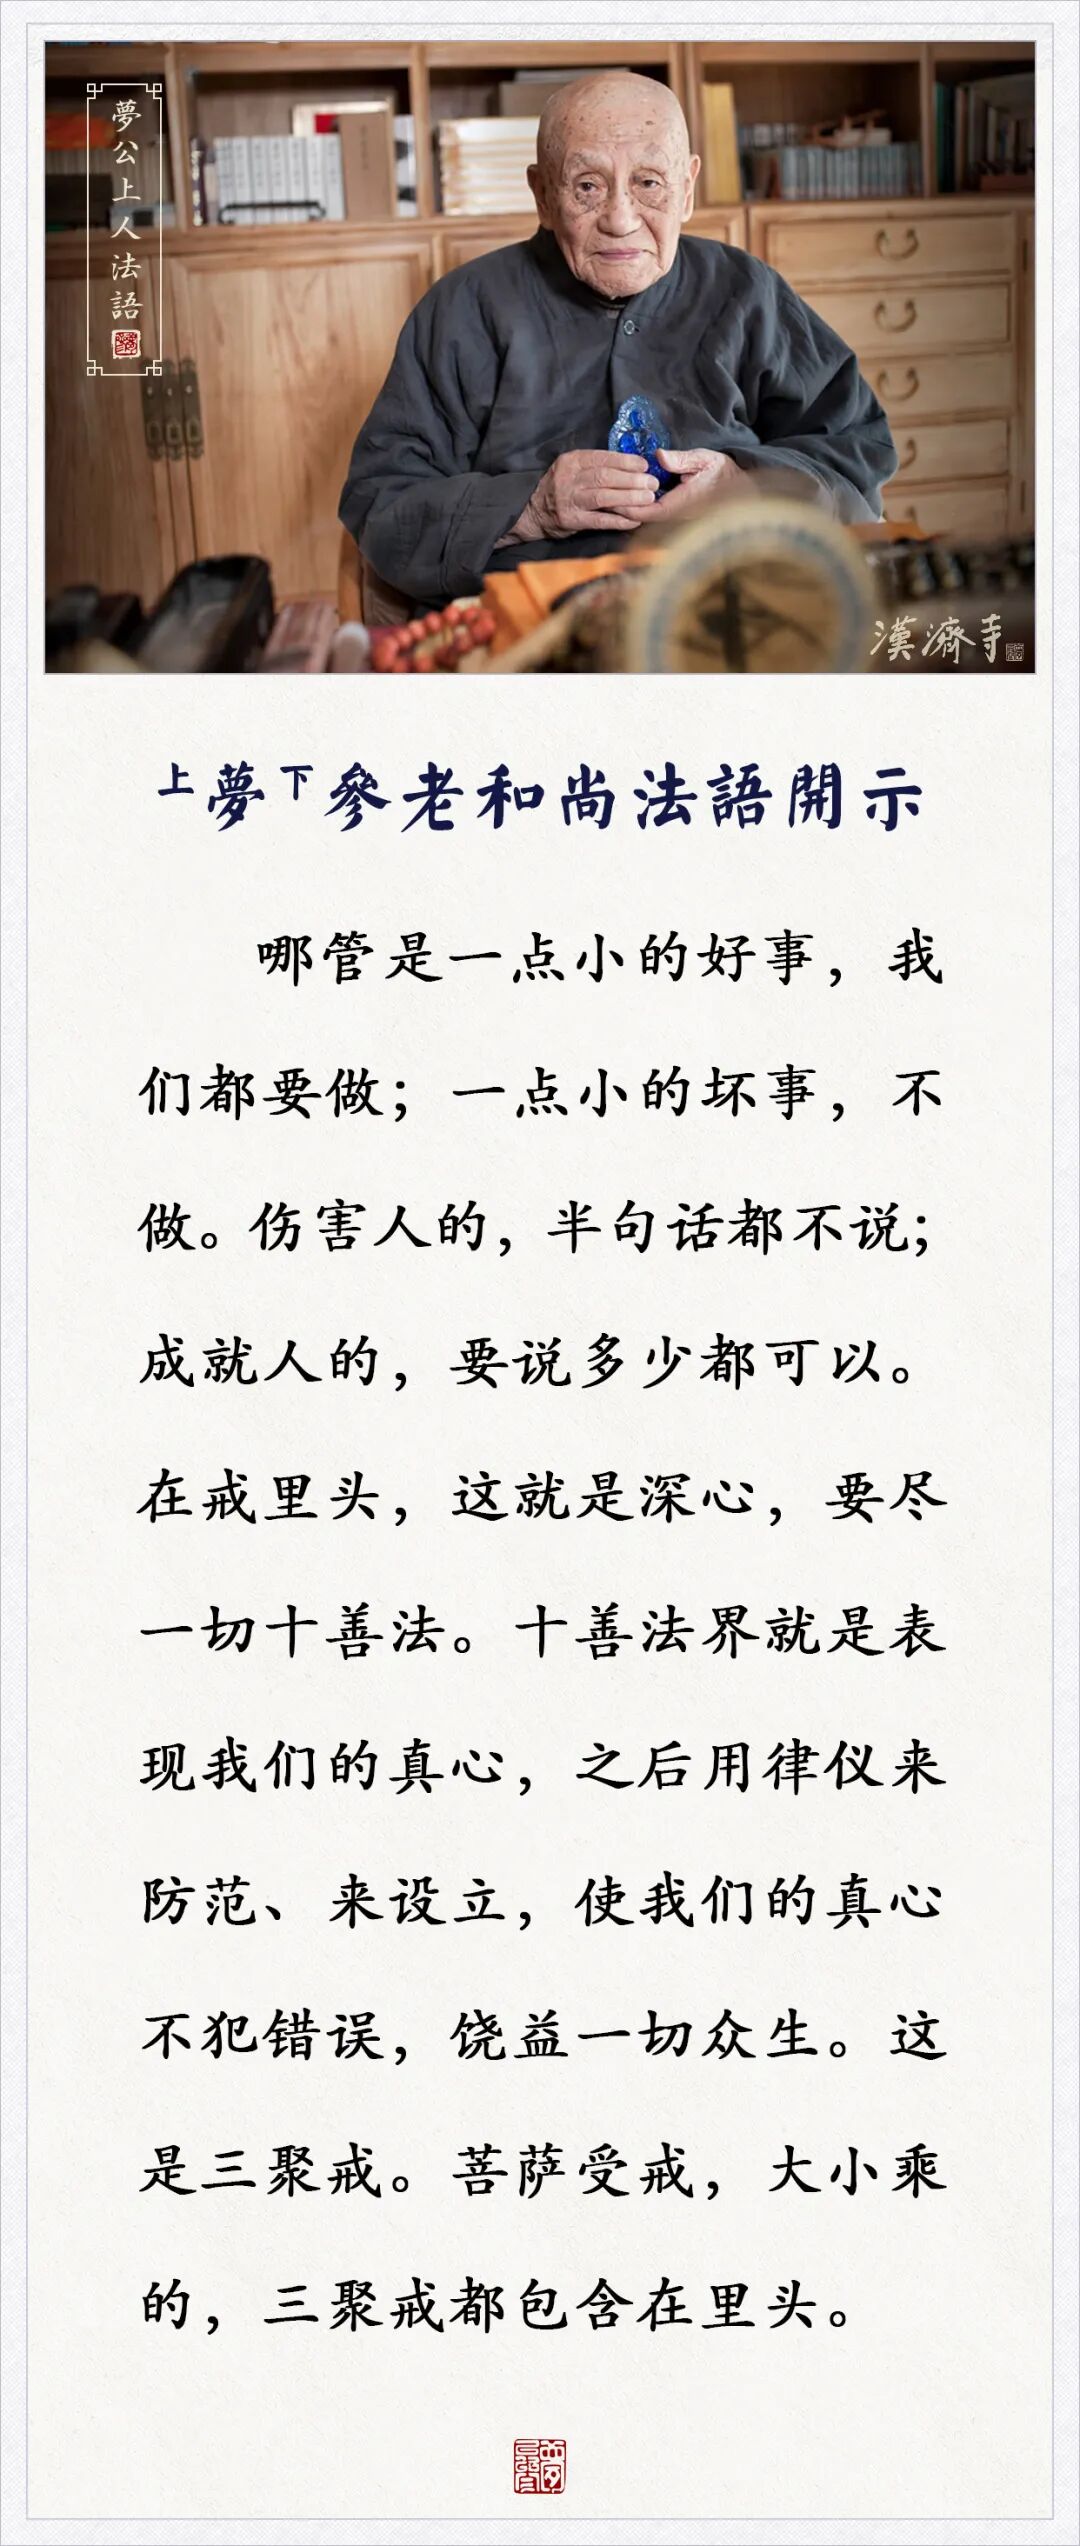 夢公上人法語
漢濟寺
上夢下參老和尚法語開示
哪管是一点小的好事，我
们都要做；一点小的坏事，不
做。伤害人的，半句话都不说；
成就人的，要说多少都可以。
在戒里头，这就是深心，要尽
一切十善法。十善法界就是表
现我们的真心，之后用律仪来
防范、来设立，使我们的真心
不犯错误，饶益一切众生。这
是三聚戒。菩萨受戒，大小乘
的，三聚戒都包含在里头。